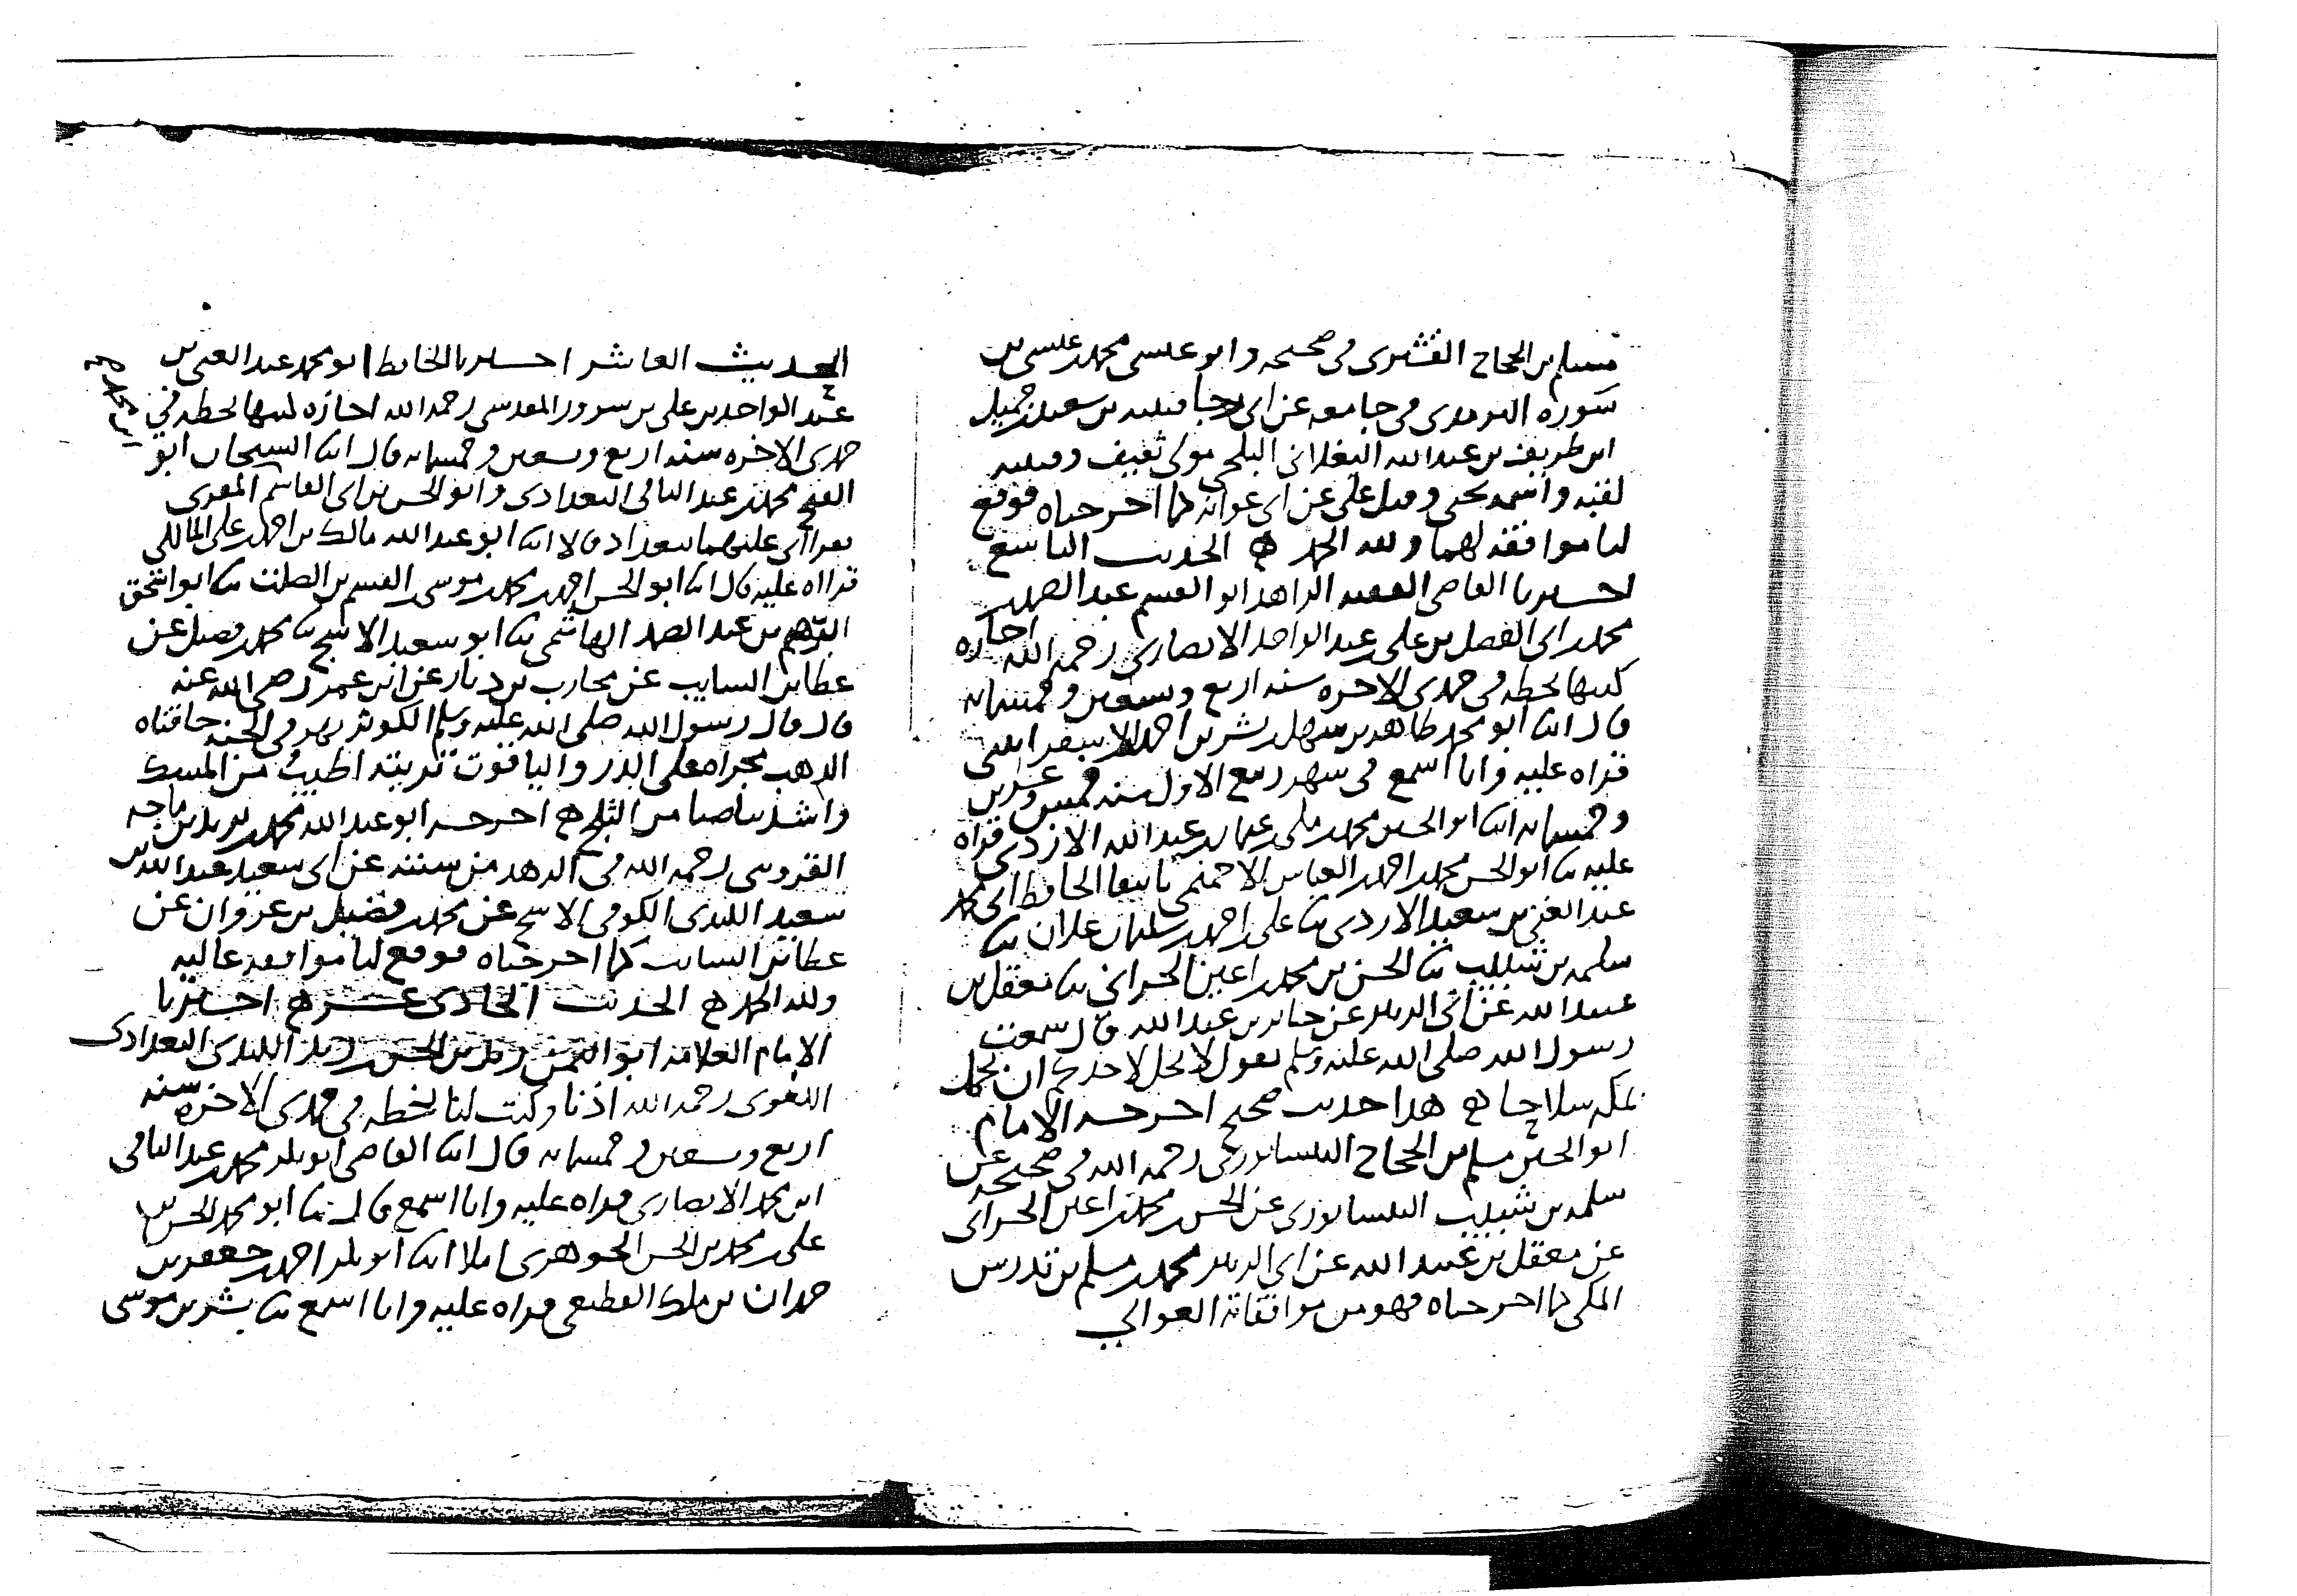 مسلم بن الحجاج القشيرى فى صحيحه وابو عيسى محمد بن عيسى بن
سوره الترمذى فى جامعه عن ابى رجا قتيبه بن سعيد بن جميل
ابن طريف بن عبد الله البغلانى البلخى مولى ثقيف وقتيبه
لقبه واسمه يحيى وقيل على عن ابى عوانه كما اخرجناه فوقع
لنا موافقه لهما ولله الحمد ه الحديث التاسع
اخبرنا القاضى الفقيه الزاهد ابو القسم عبد الصمد بن
محمد بن ابى الفضل بن على بن عبد الواحد الانصارى رحمه الله اجازه
كتبها بخطه فى جمدى الاخره سنه اربع وتسعين وخمسمايه
قال انا ابو محمد طاهر بن سهل بن بشر بن احمد الاسفراينى
قراه عليه وانا اسمع فى شهر ربيع الاول سنه خمس وعشرين
وخمسمايه انا ابو الحسين محمد بن مكى بن عثمان بن عبد الله الازدى قراه
عليه نا ابو الحسن محمد بن احمد بن العباس الاخميمى بانتقا الحافظ ابى محمد
عبد الغنى بن سعيد الازدى نا على بن احمد بن سليمان علان نا
سلمه بن شبيب نا الحسن بن محمد بن اعين الحرانى نا معقل بن
عبيد الله عن ابى الزبير عن جابر بن عبد الله قال سمعت
رسول الله صلى الله عليه وسلم يقول لا يحل لاحدكم ان يحمل
بمكه سلاحا ه هذا حديث صحيح اخرجه الامام
ابو الحسين مسلم بن الحجاج النيسابورى رحمه الله فى صحيحه عن
سلمه بن شبيب النيسابورى عن الحسن بن محمد بن اعين الحرانى
عن معقل بن عبيد الله عن ابى الزبير محمد بن مسلم بن تدرس
المكى كما اخرجناه فهو من موافقاته العوالي
الحديث العاشر اخبرنا الحافظ ابو محمد عبد الغنى بن
عبد الواحد بن على بن سرور المقدسى رحمه الله اجازه كتبها بخطه فى
جمدى الاخره سنه اربع وتسعين وخمسمايه قال انا الشيخان ابو
الفتح محمد بن عبد الباقى البغدادى وابو الحسن بن ابى القاسم المقرى
بقراتى عليهما ببغداد قالا انا ابو عبد الله مالك بن احمد بن على المالكى
قراه عليه قال انا ابو الحسن احمد بن محمد بن موسى بن القسم بن الصلت نا ابو اسحق
ابرهيم بن عبد الصمد الهاشمى نا ابو سعيد الاشج نا محمد بن فضيل عن
عطا بن السايب عن محارب بن دثار عن ابن عمر رضى الله عنه
قال قال رسول الله صلى الله عليه وسلم الكوثر نهر فى الجنه حافتاه
الذهب مجراه على الدر والياقوت تربته اطيب من المسك
واشد بياضا من الثلج ه اخرجه ابو عبد الله محمد بن يزيد بن ماجه
القزوينى رحمه الله فى الزهد من سننه عن ابى سعيد عبد الله بن
سعيد الكندى الكوفى الاشج عن محمد بن فضيل بن غزوان عن
عطا بن السايب كما اخرجناه فوقع لنا موافقه عاليه
ولله الحمد ه الحديث الحادى عشر ه اخبرنا
الامام العلامه ابو اليمن زيد بن الحسن بن زيد الكندى البغدادى
اللغوى رحمه الله اذنا وكتب لنا بخطه فى جمدى الاخره سنه
اربع وتسعين وخمسمايه قال انا القاضى ابو بكر محمد بن عبد الباقى
ابن محمد الانصارى قراه عليه وانا اسمع قال نا ابو محمد الحسن بن
على بن محمد بن الحسن الجوهرى املا انا ابو بكر احمد بن جعفر بن
حمدان بن ملك القطيعى قراه عليه وانا اسمع نا بشر بن موسى